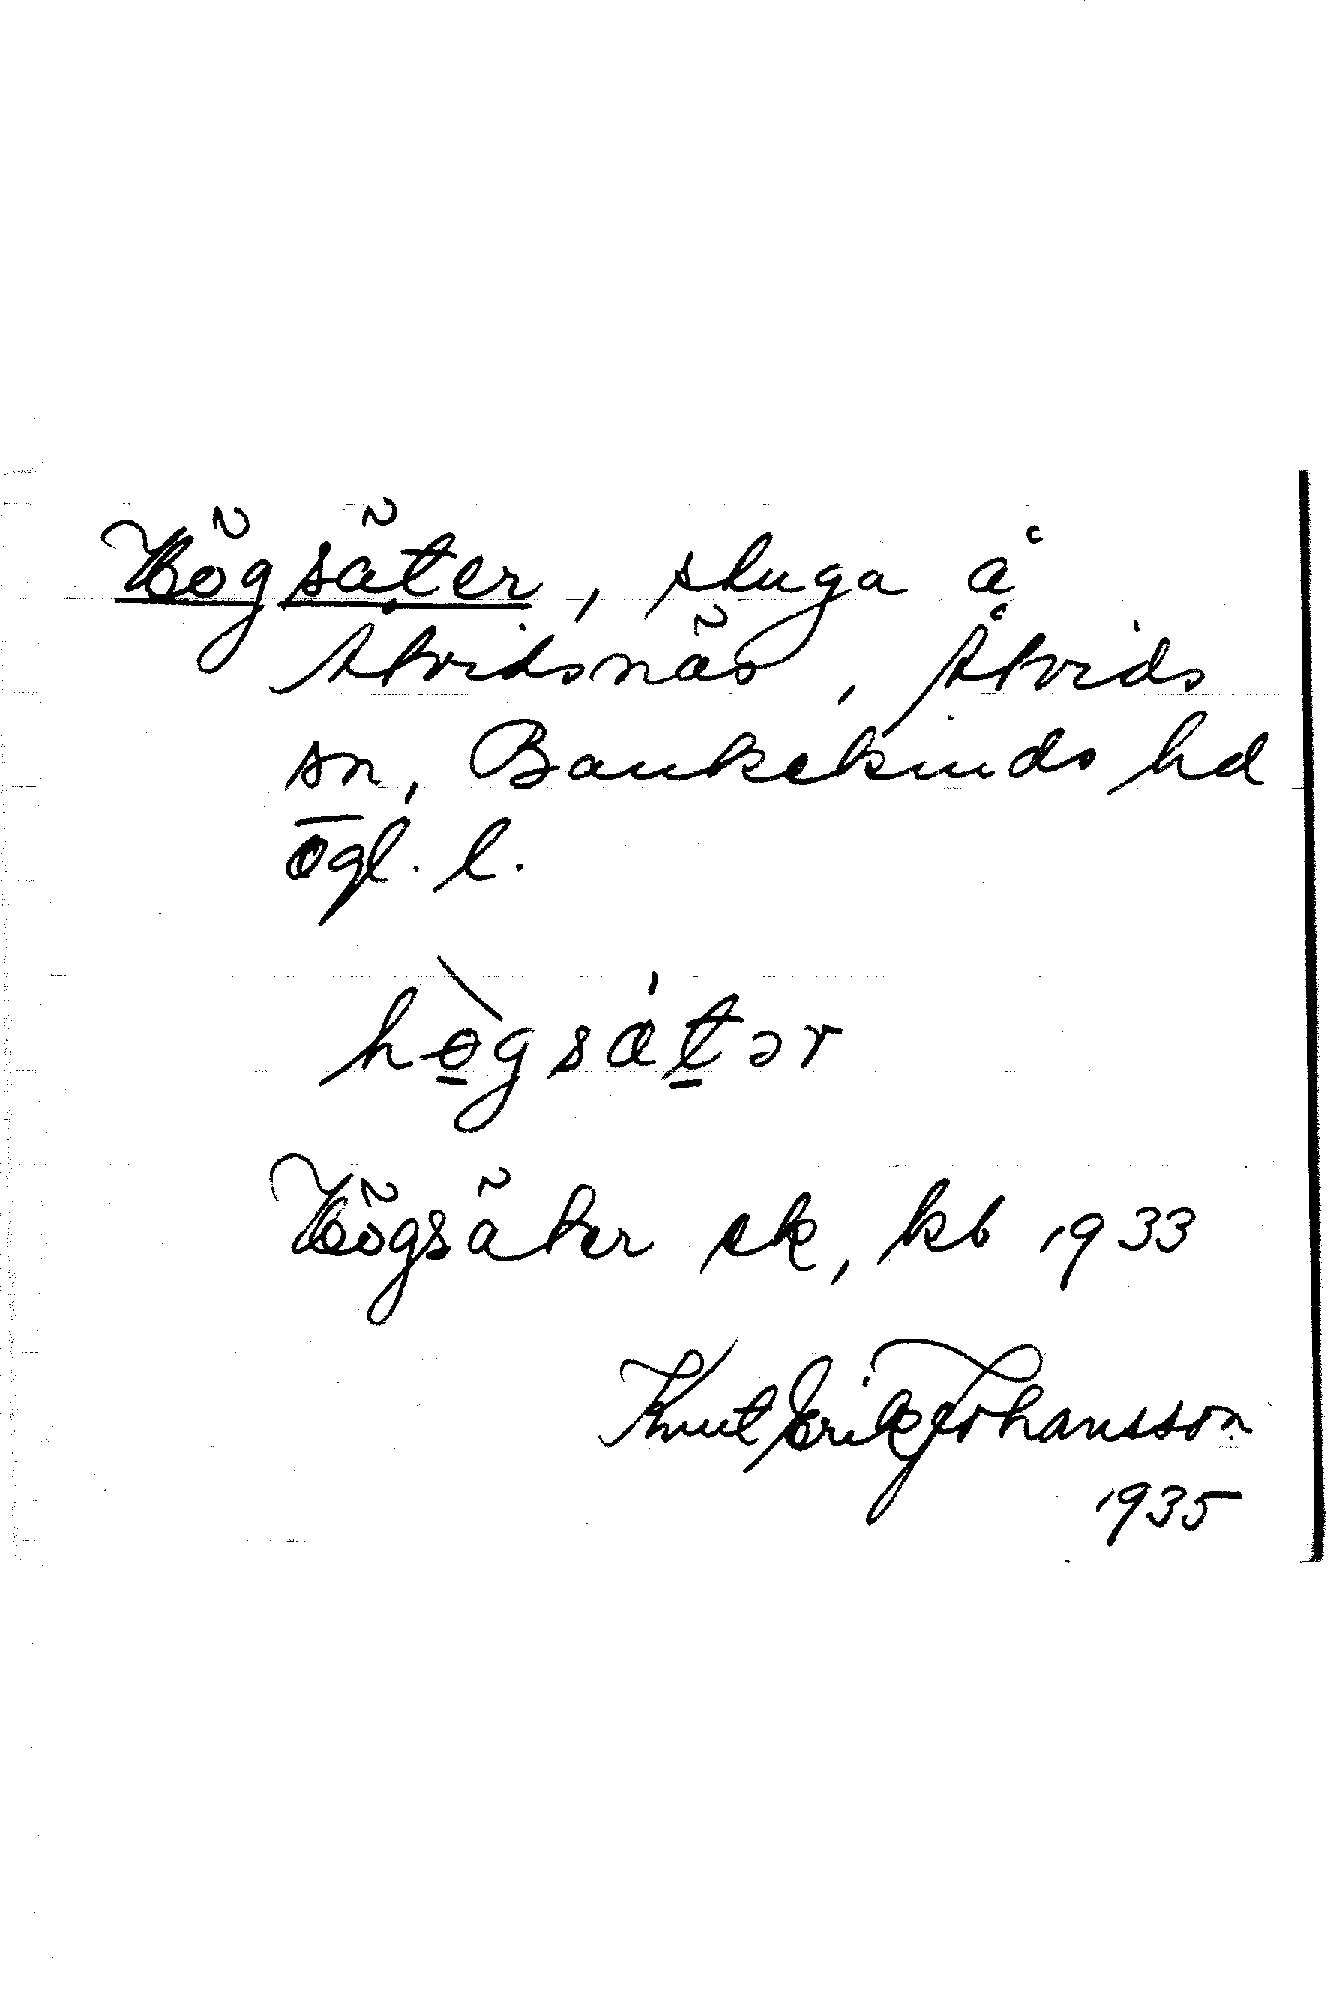 Högsäter, stuga å
Åtvidsnäs, Åtvids
sn, Bankekinds hd
Ögl. l.
hògsátər
Högsäter sk, kb 1933
Knut Erik Johansson
1935